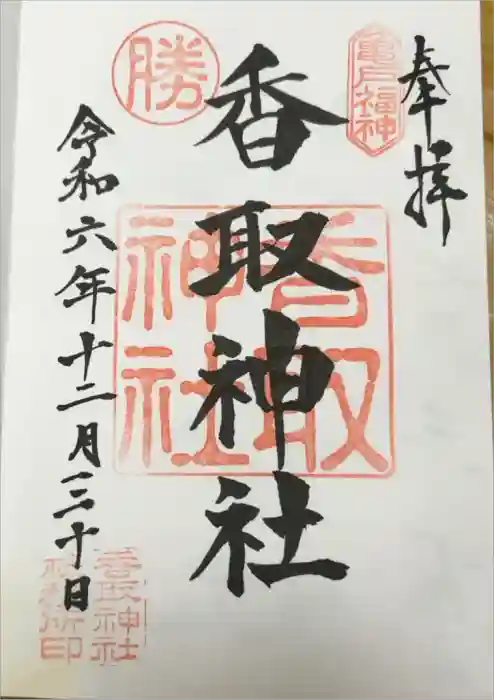 奉拝
亀戸福神
香取神社
勝
香取
神社
令和六年十二月三十日
香取神社
社務所印